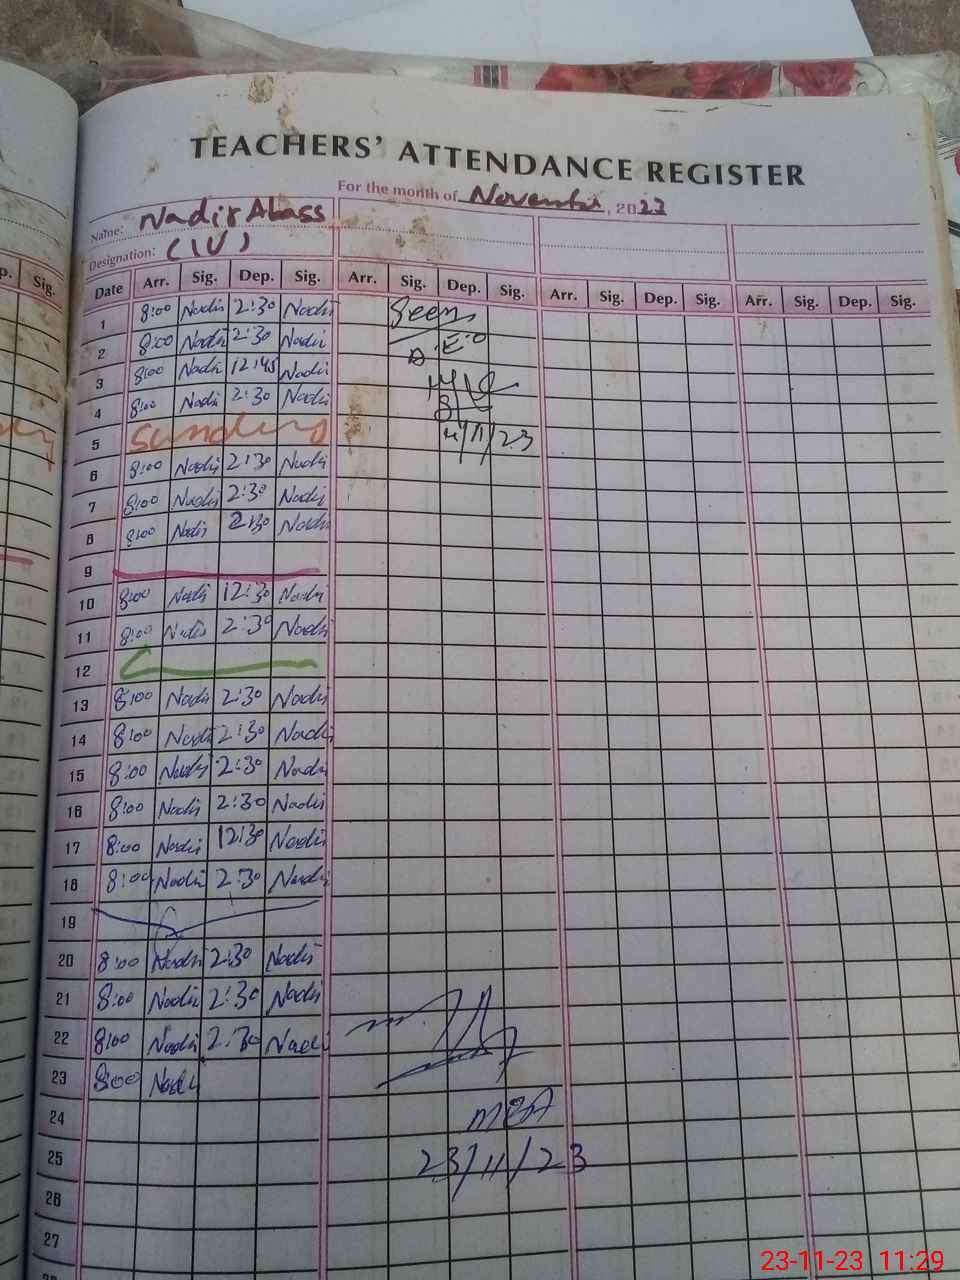 TEACHERS' ATTENDANCE REGISTER
For the month of November, 2023
Name: Nadir Abass
Designation: (IV)
p. Sig.
Date Arr. Sig. Dep. Sig. Arr. Sig. Dep. Sig. Arr. Sig. Dep. Sig. Arr. Sig. Dep. Sig.
1 8:00 Nadir 2:30 Nadir Seen
2 8:00 Nadir 2:30 Nadir D.E.O
3 8:00 Nadir 12:45 Nadir
4 8:00 Nadir 2:30 Nadir
5 Sunday /11/23
6 8:00 Nadir 2:30 Nadir
7 8:00 Nadir 2:30 Nadir
8 8:00 Nadir 2:30 Nadir
9
10 8:00 Nadir 12:30 Nadir
11 8:00 Nadir 2:30 Nadir
12
13 8:00 Nadir 2:30 Nadir
14 8:00 Nadir 2:30 Nadir
15 8:00 Nadir 2:30 Nadir
16 8:00 Nadir 2:30 Nadir
17 8:00 Nadir 12:30 Nadir
18 8:00 Nadir 2:30 Nadir
19
20 8:00 Nadir 2:30 Nadir
21 8:00 Nadir 2:30 Nadir
22 8:00 Nadir 2:30 Nadir
23 8:00 Nadir
24 MEA
25 23/11/23
26
27
23-11-23 11:29